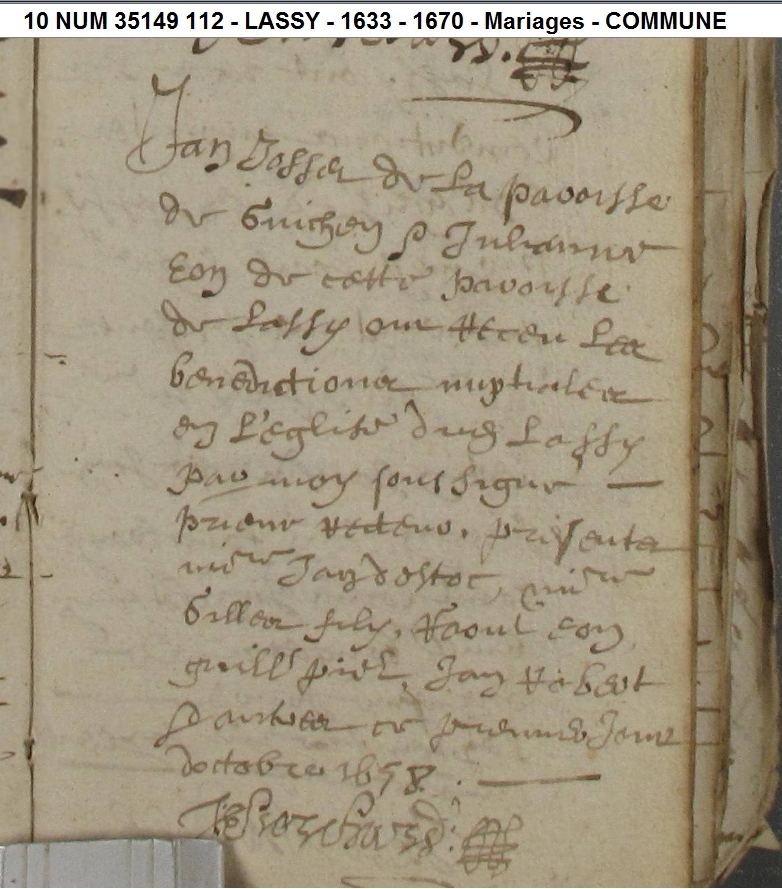 10 NUM 35149 112 - LASSY - 1633 - 1670 - Mariages - COMMUNE
Jan Josses de la paroisse
de Guichen & Julianne
Eon de cette paroisse
de Lassy ont Receu Les
benedictions nuptiales
en L'eglise dud Lassy
par moy soussigne
prieur Recteur. presents
miere Jan dostoc, miere
Gilles fily, Raoul Eon
guill piel, Jan Robert
& autres ce premier Jour
doctobre 1658.